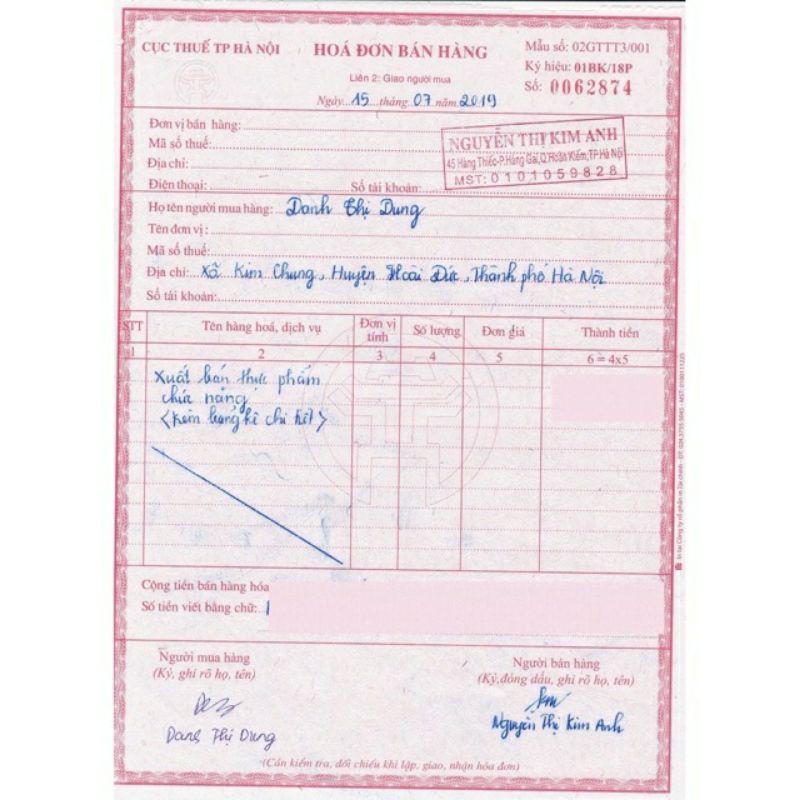 CỤC THUẾ TP HÀ NỘI
HOÁ ĐƠN BÁN HÀNG
Liên 2: Giao người mua
Ngày...15...tháng...07...năm...2019
Mẫu số: 02GTTT3/001
Ký hiệu: 01BK/18P
Số: 0062874
Đơn vị bán hàng:
Mã số thuế:
Địa chỉ:
Điện thoại: Số tài khoản:
NGUYỄN THỊ KIM ANH
45 Hàng Thiếc-P.Hàng Gai,Q.Hoàn Kiếm,TP.Hà Nội
MST: 0101059828
Họ tên người mua hàng: Danh Thị Dung
Tên đơn vị:
Mã số thuế:
Địa chỉ: Xã Kim Chung, Huyện Hoài Đức, Thành phố Hà Nội
Số tài khoản:
STT Tên hàng hoá, dịch vụ Đơn vị tính Số lượng Đơn giá Thành tiền
1 2 3 4 5 6 = 4x5
Xuất bán thực phẩm
chức năng
<Kèm bảng kê chi tiết>
Cộng tiền bán hàng hóa
Số tiền viết bằng chữ:
Người mua hàng
(Ký, ghi rõ họ, tên)
Dang Thị Dung
Người bán hàng
(Ký,đóng dấu, ghi rõ họ, tên)
Nguyễn Thị Kim Anh
(Cần kiểm tra, đối chiếu khi lập, giao, nhận hóa đơn)